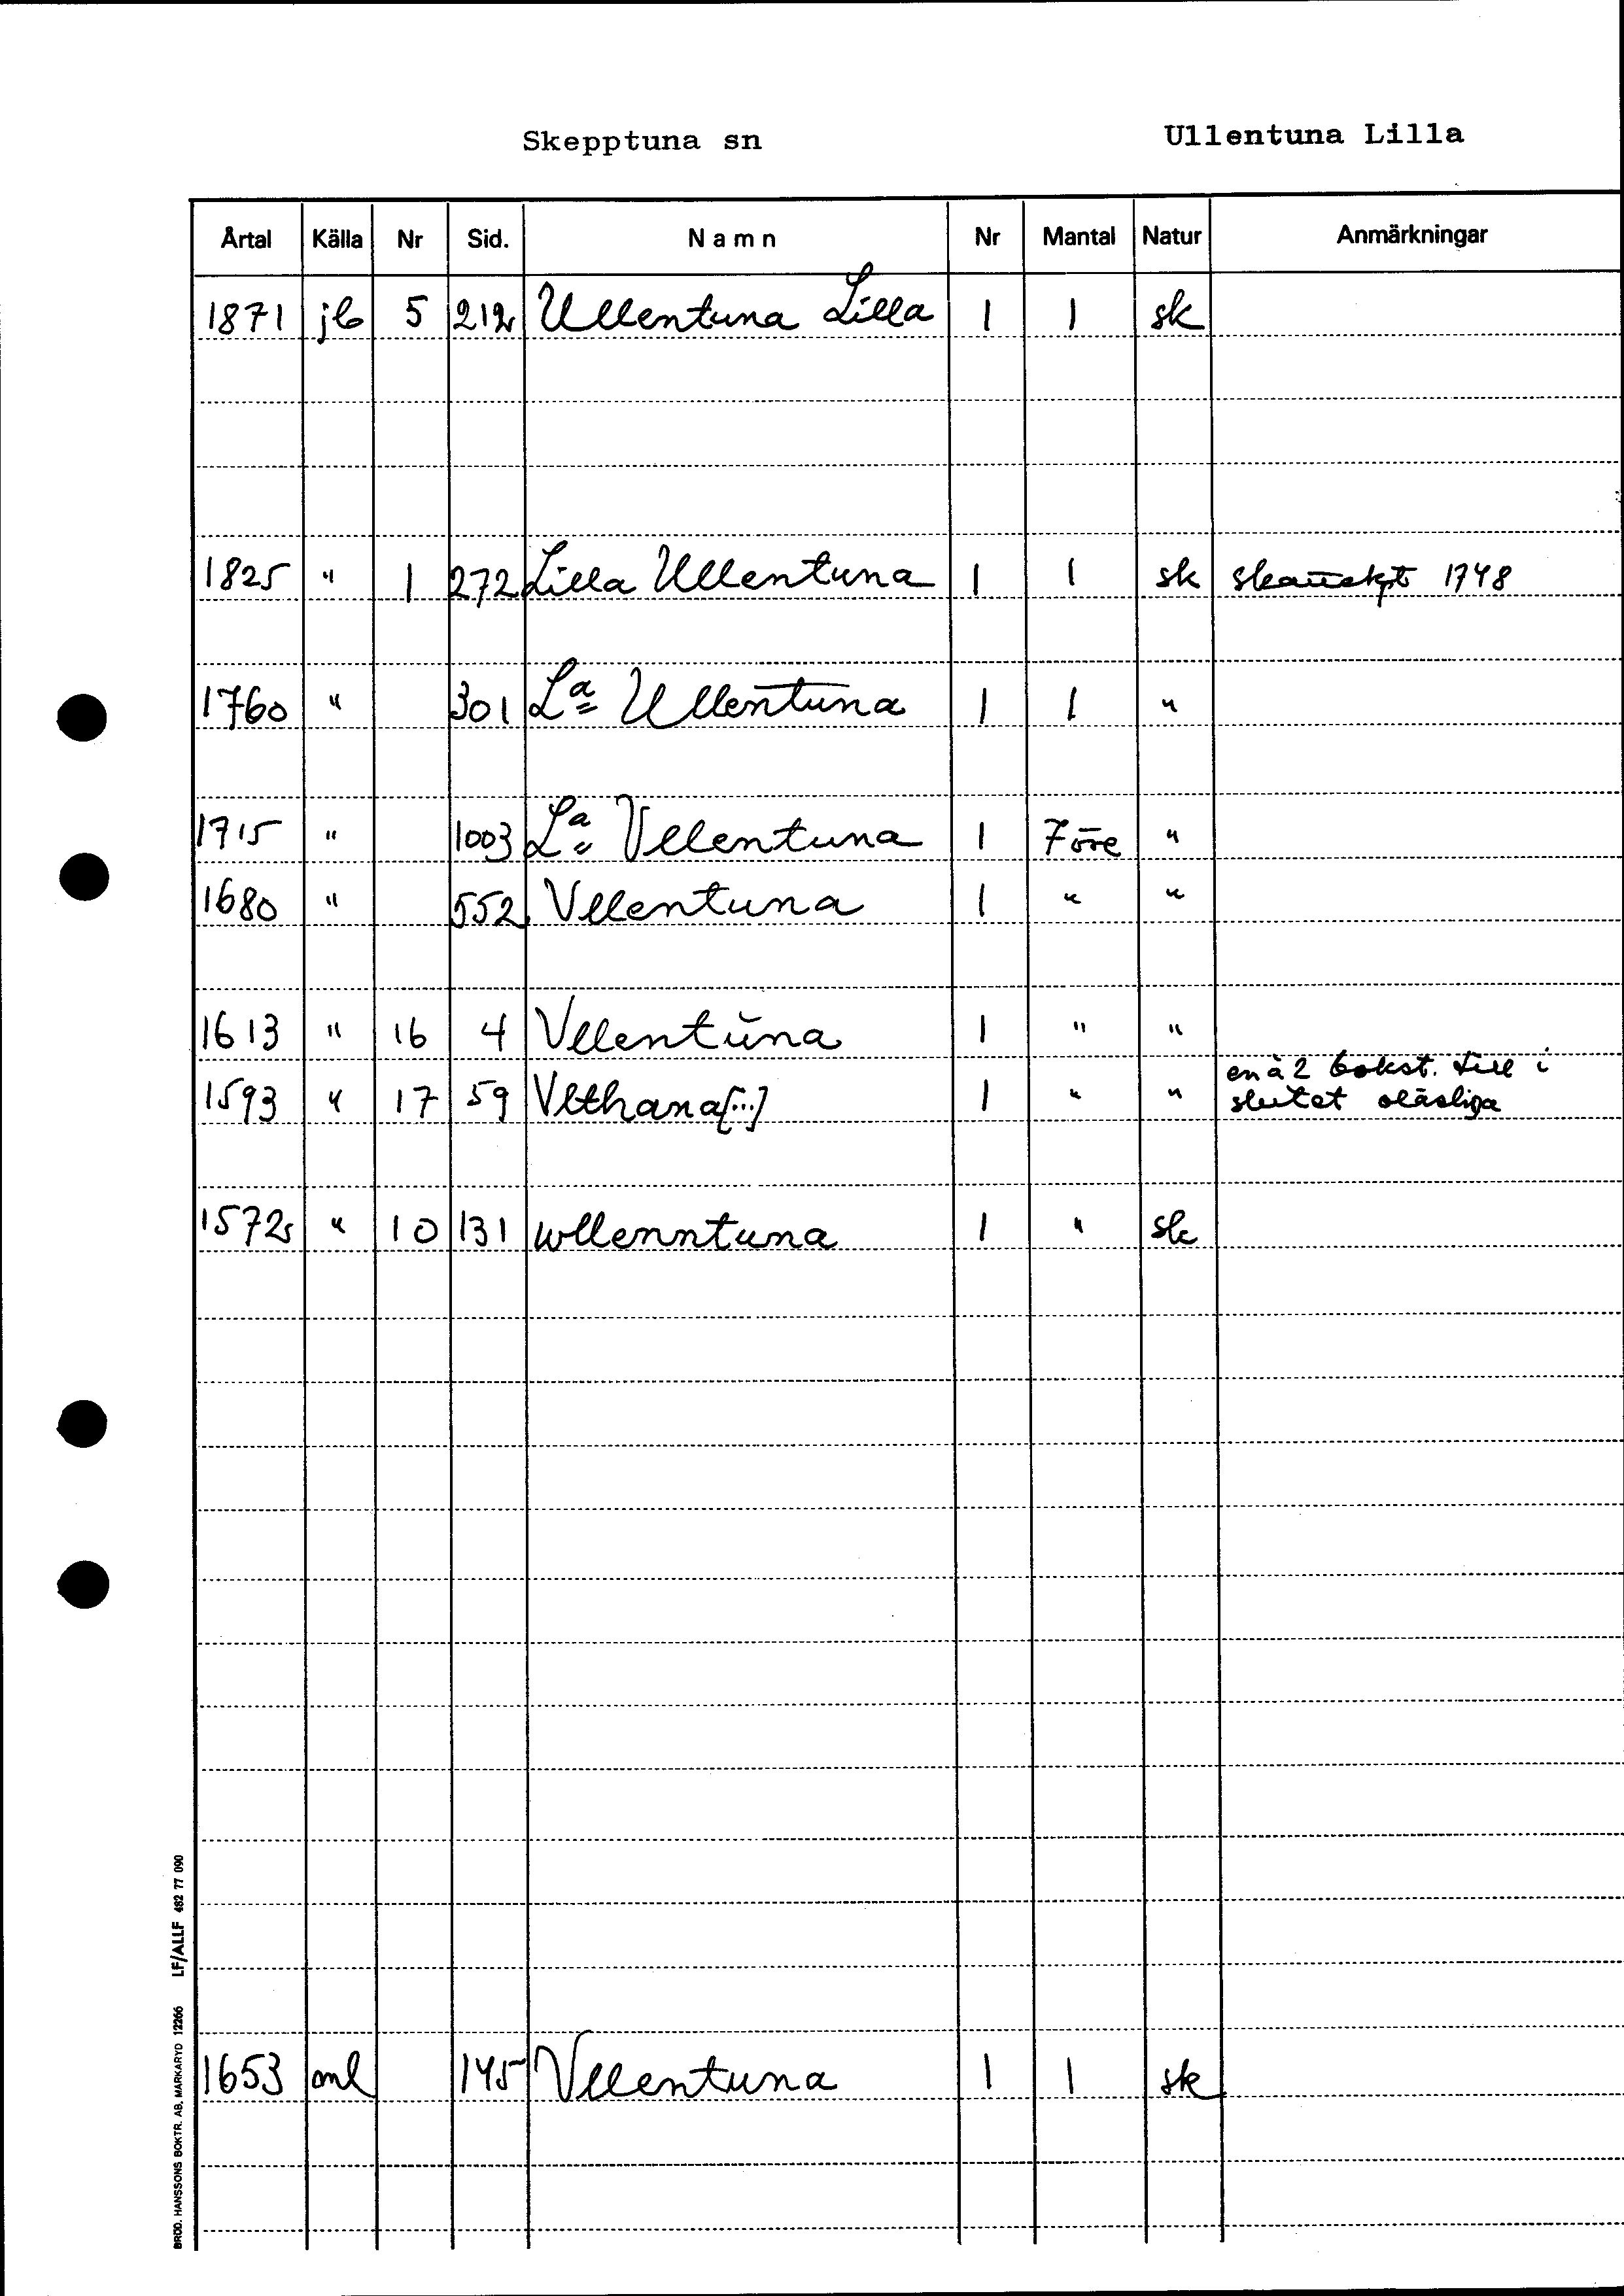 Skepptuna sn Ullentuna Lilla
Årtal Källa Nr Sid. Namn Nr Mantal Natur Anmärkningar
1871 jb 5 212 Ullentuna Lilla 1 1 sk
1825 " 1 272 Lilla Ullentuna 1 1 sk 1748
1760 " 301 La Ullentuna 1 1 "
1715 " 1003 La Vllentuna 1 7 öre "
1680 " 552 Vllentuna 1 " "
1613 " 16 4 Vllentŭna 1 " "
en à 2 bokst. till i
1593 " 17 59 Vlthana[...] 1 " " slutet oläsliga
1572 " 10 131 wllenntuna 1 " sk
1653 ml 145 Vllentuna 1 1 sk
BRÖD. HANSSONS BOKTR. AB, MARKARYD 12266 LF/ALLF 482 77 090